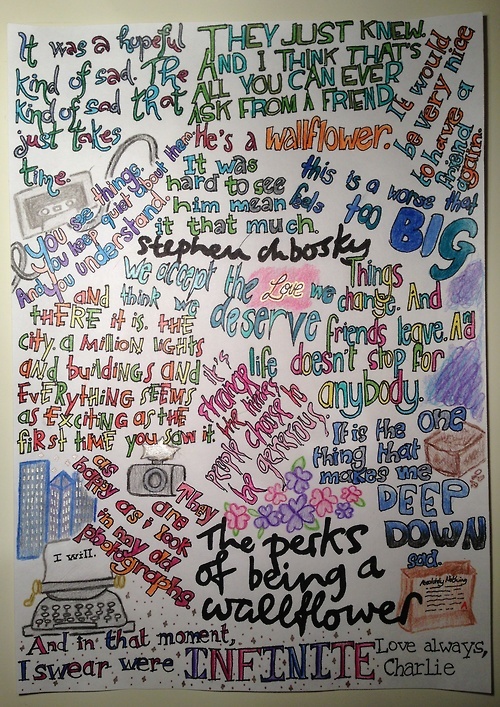 It was a hopeful
kind of sad. The
kind of sad that
just takes
time.
THEY JUST KNEW.
AND I THINK THAT'S
ALL YOU CAN EVER
ASK FROM A FRIEND
It would
be very nice
to have a
friend
again.
He's a wallflower.
You see things.
You keep quiet about them.
And you understand.
It was
hard to see
him mean
it that much.
this is a worse that
feels
too BIG
stephen chbosky
We accept the Love we
think we deserve
Things
change. And
friends leave. And
life doesn't stop for
anybody.
and
tHERE it is. tHE
city. a million lights
and buildings and
EVERYTHING SEEMS
as exciting as the
first time you saw it.
it's
strange
the things
people choose to
be generous.
It is the one
thing that
makes me
DEEP
DOWN
sad.
They
are
as
happy as i look
in my old
photographs.
I will.
The perks
of being a
wallflower
Absolutely Nothing
A
And in that moment,
I swear were INFINITE
Love always,
Charlie